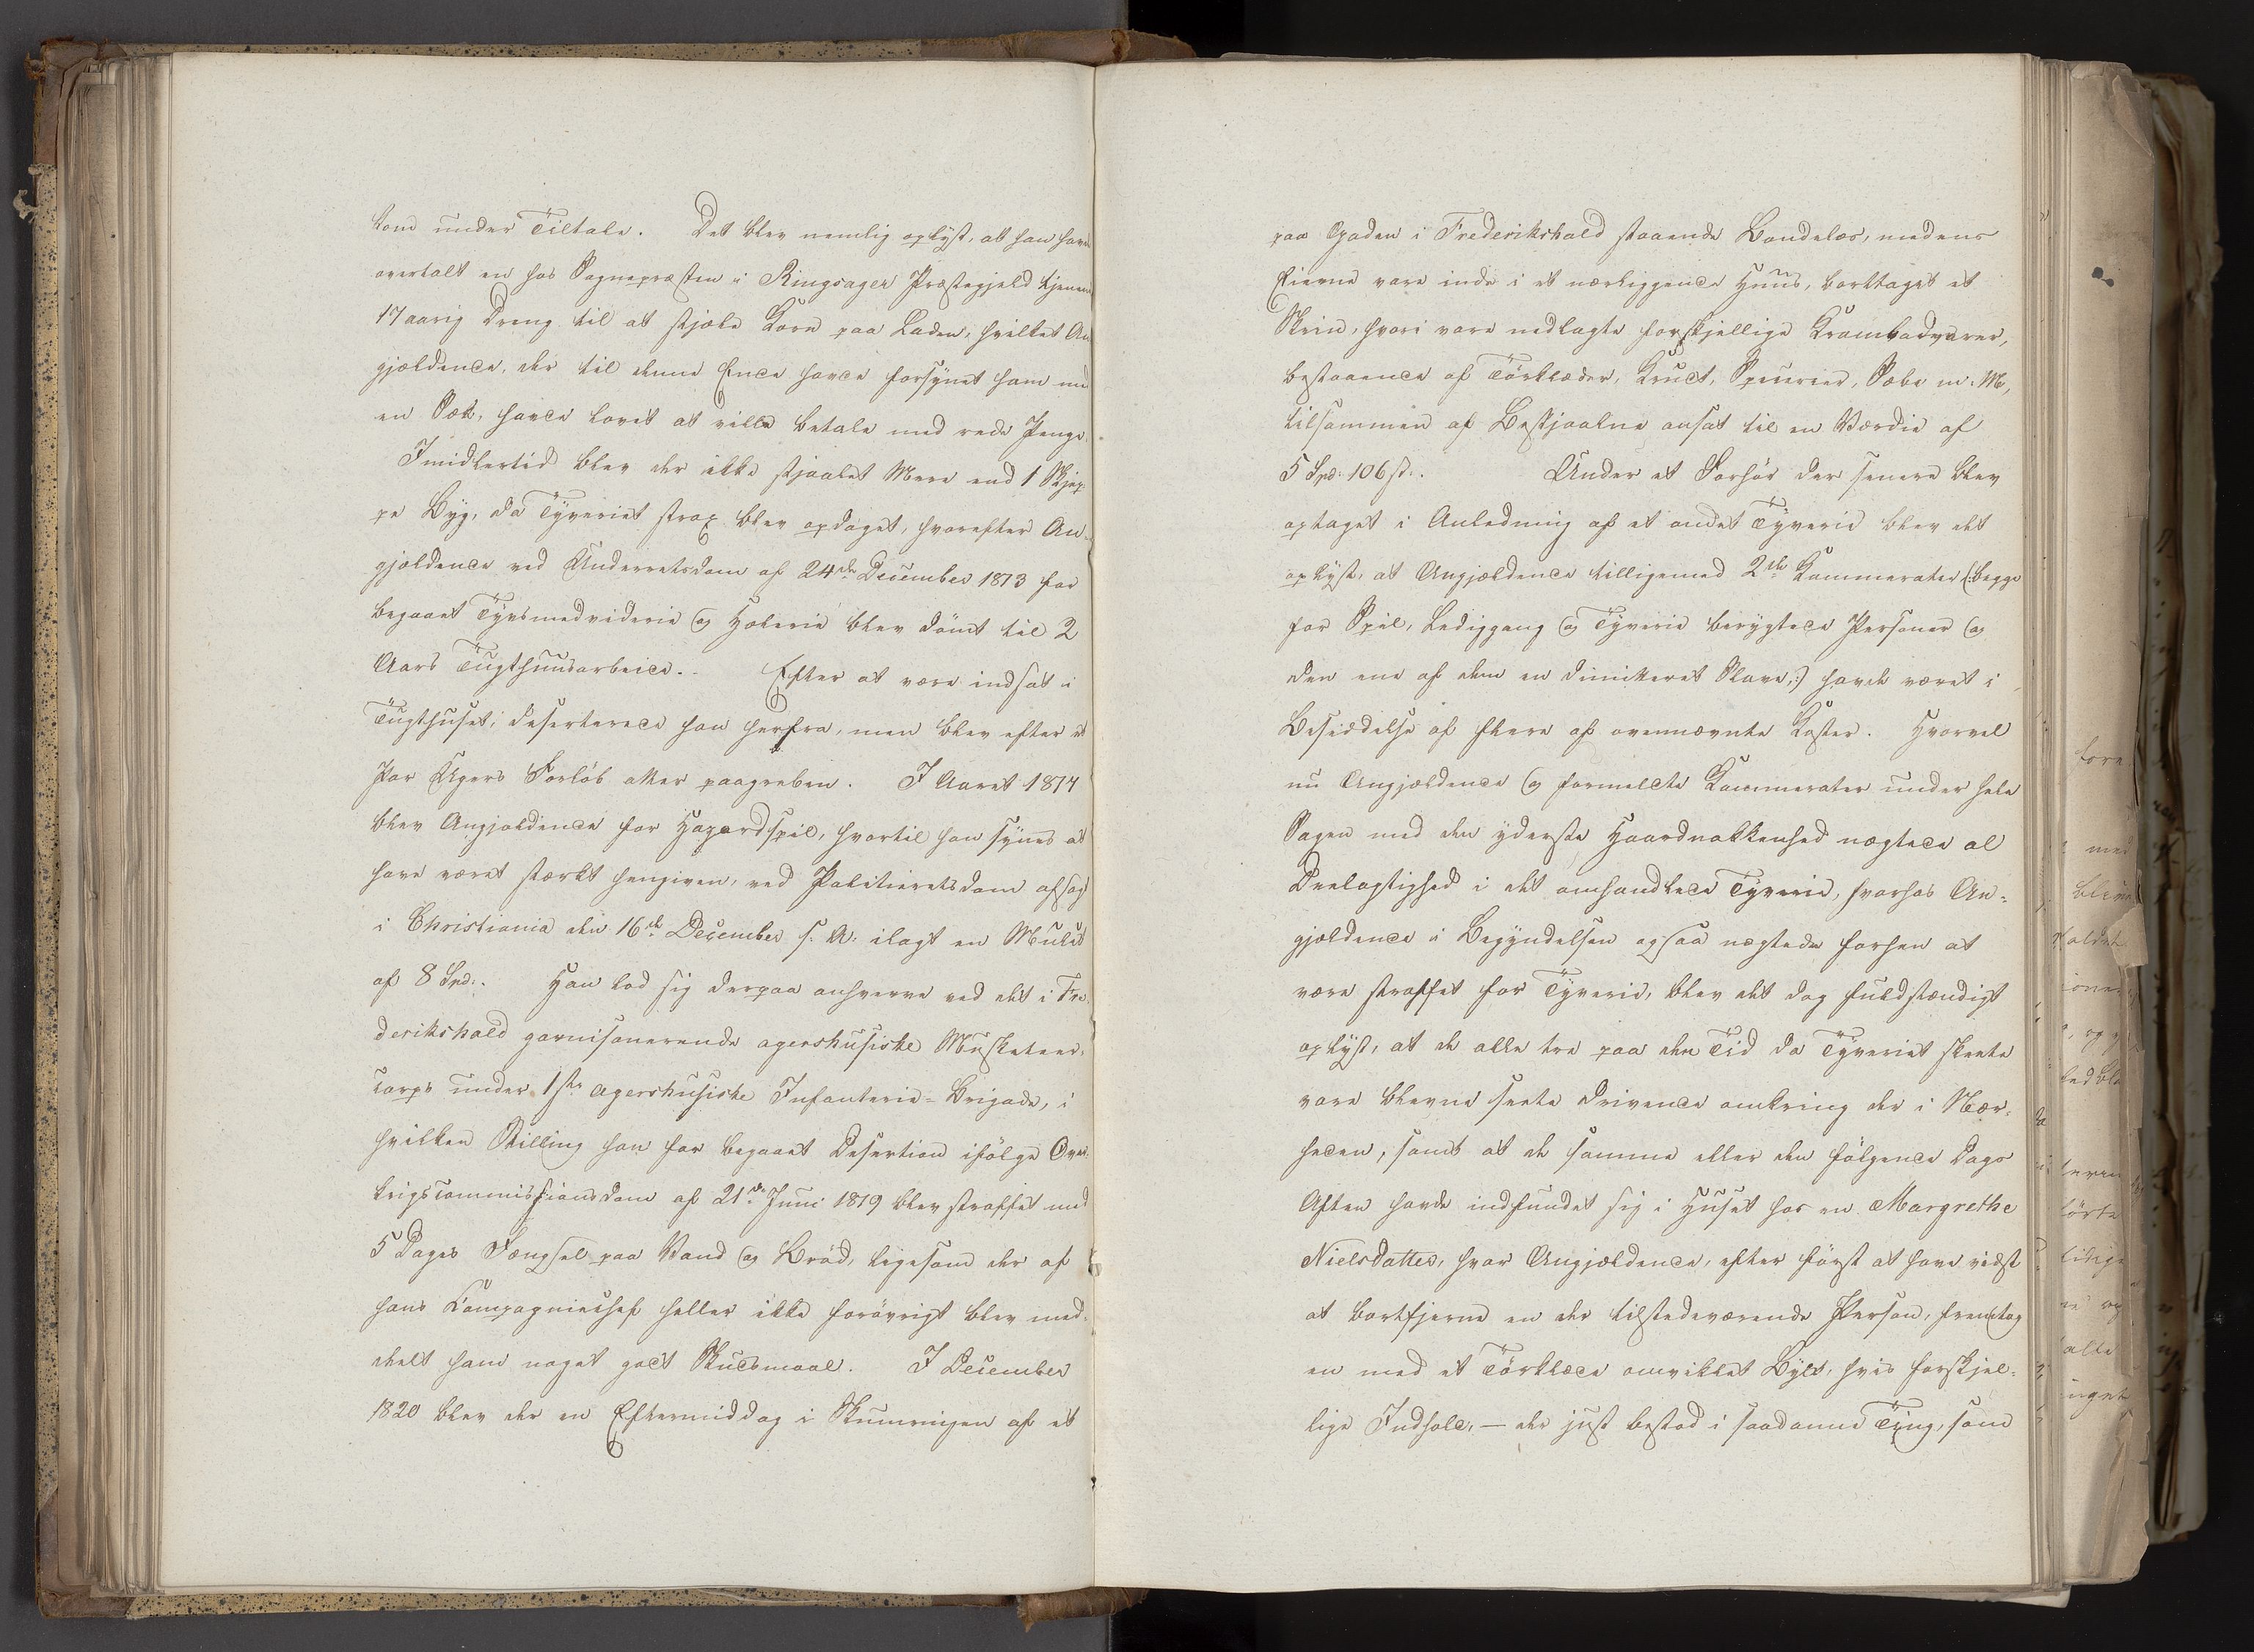 kom under Tiltale. Det blev nemlig oplyst, at han havde
overtalt en hos Sognepræsten i Ringsager Præstegjeld tjenende
17 aarig Dreng til at stjæle Korn paa Laden, hvilket An
gjældende, der til denne Ende havde forsynet ham med
en Sæk, havde lovet at ville betale med rede Penge.
Imidlertid blev der ikke stjaalet Mere end 1 Skjep-
pe Byg, da Tyveriet strax blev opdaget, hvorefter An-
gjældende ved Underretsdom af 24de December 1813 for
begaaet Tyvsmedvideri og Hæleri blev dömt til 2
Aars Tugthuusarbeide. Efter at være indsat i
Tugthuset, deserterede han herfra, men blev efter et
Par Ugers Forlöb atter paagreben. I Aaret 1817
blev Angjældende for Hazardspil, hvortil han synes at
have været stærkt hengiven, ved Politieretsdom afsagt
i Christiania den 16de December s. A. ilagt en Mulct
af 8 Spd. Han lod sig derpaa anhverve ved det i Fre-
derikshald garnisonerende agershusiske Musketeer-
corps under 1ste agershusiske Infanterie-Brigade, i
hvilken Stilling han for begaaet Desertion ifölge Over-
krigscommissionsdom af 21de Juni 1819 blev straffet med
5 Dages Fængsel paa Vand og Bröd, ligesom der af
hans Compagniechef heller ikke forövrigt blev med-
deelt ham noget godt Skudsmaal. I December
1820 blev der en Eftermiddag i Skumringen af et
paa Gaden i Frederikshald staaende Bondelæs, medens
Eierne vare inde i et nærliggende Huus, borttaget et
Skrin, hvori vare nedlagte forskjellige Krambodvarer,
bestaaende af Törklæder, Krudt, Specerier, Sæbe m. M,
tilsammen af Bestjaalne ansat til en Værdie af
5 Spd. 106 s. Under et Forhör der senere blev
optaget i Anledning af et andet Tyverie blev det
oplyst, at Angjældende tilligemed 2de Kammerater (: begge
for Spil, Lediggang og Tyverie berygtede Personer og
den ene af dem en dimitteret Slave, :) havde været i
Besiddelse af flere af ovennævnte Koster. Hvorvel
nu Angjældende og formeldte Kammerater under hele
Sagen med den yderste Haardnakkenhed nægtede al
Deelagtighed i det omhandlede Tyverie, hvorhos An-
gjældende i Begyndelsen ogsaa nægtede forhen at
være straffet for Tyverie, blev det dog fuldstændigt
oplyst, at de alle tre paa den Tid da Tyveriet skeete
vare blevne seete drivende omkring der i Nær-
heden, samt at de samme eller den fölgende Dags
Aften havde indfundet sig i Huset hos en Margrethe
Nielsdatter, hvor Angjældende, efter först at have vidst
at bortfjerne en der tilstedeværende Person, fremtog
en med et Törklæde omviklet Bylt, hvis forskjel-
lige Indhold, — der just bestod i saadanne Ting, som